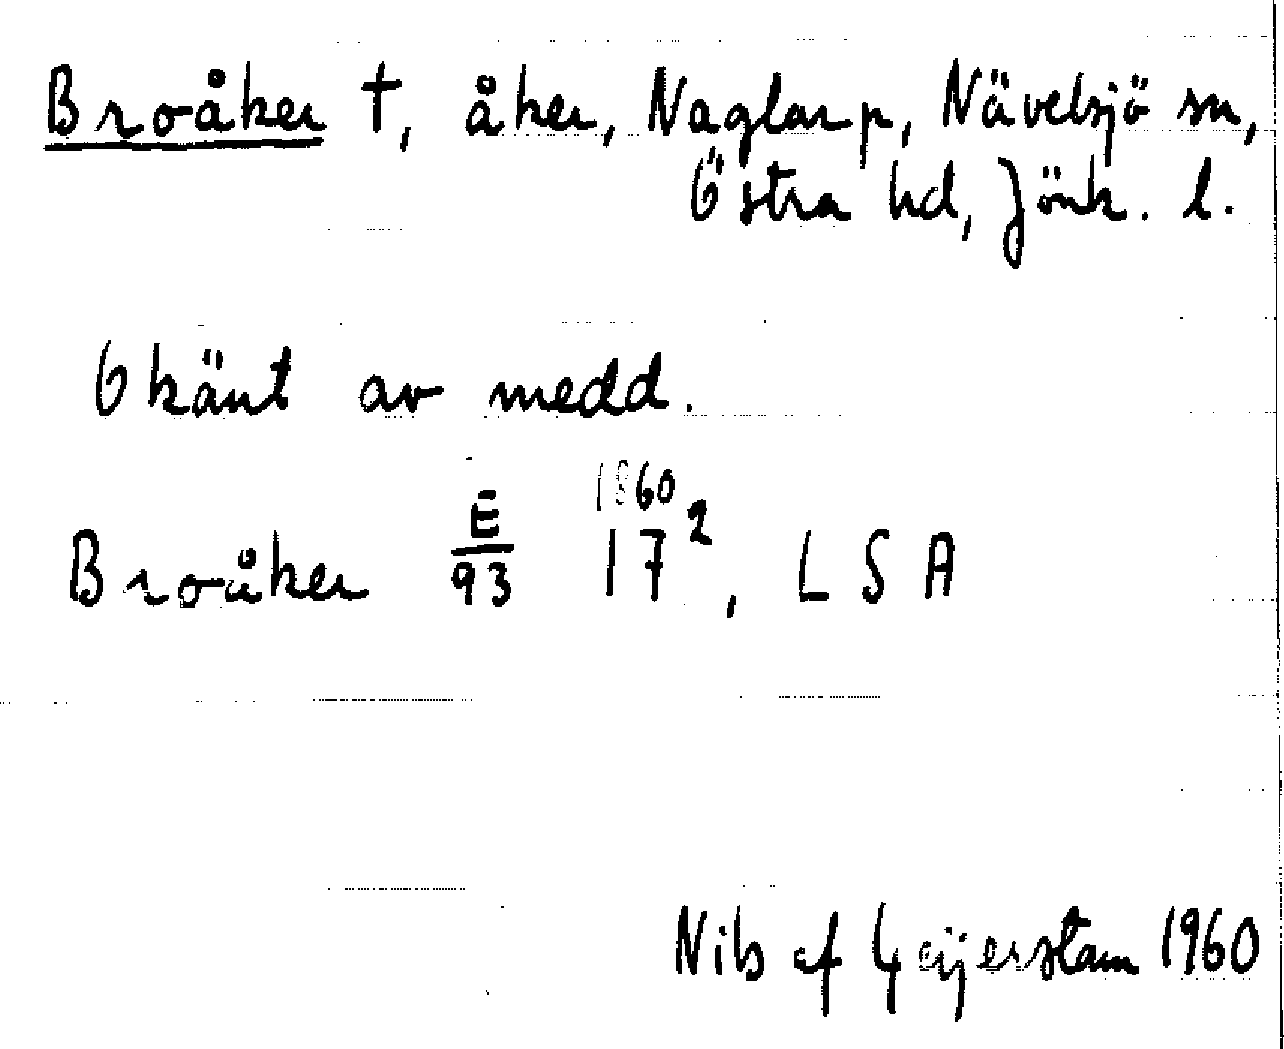 Broåker †, åker, Naglarp, Nävelsjö sn,
Östra hd, Jönk. l.
Okänt av medd.
1860
Broåker E/93 17², LSA
Nils af Geijerstam 1960